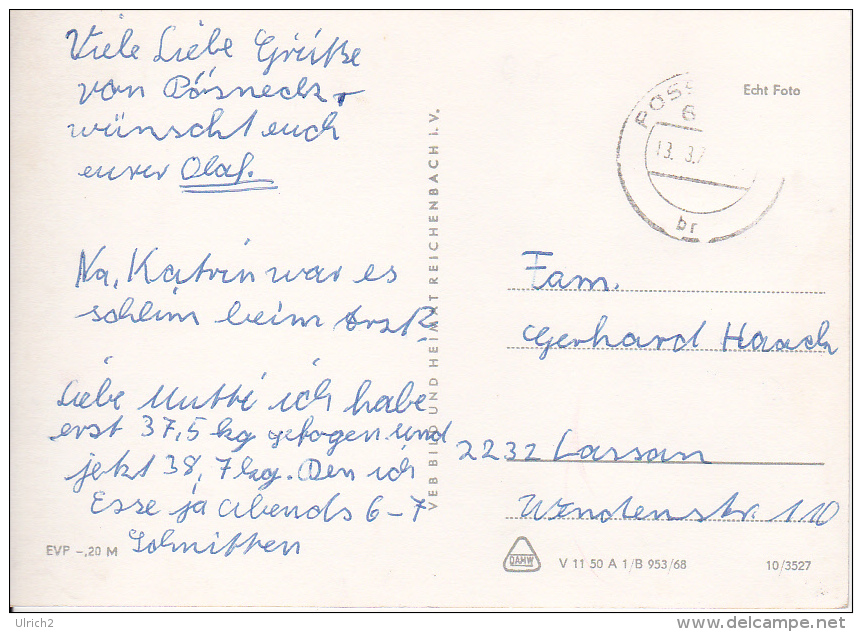 Viele Liebe Grüße
von Pösneck
wünscht euch
eurer Olaf.
Na, Katrin war es
schlim beim Arzt?
Liebe Mutti ich habe
erst 37,5 kg gewogen und
jetzt 38,7 kg. Den ich
Esse ja abends 6-7
Schnitten
EVP -,20 M
VEB BILD UND HEIMAT REICHENBACH I. V.
Echt Foto
POSS
G
13. 3.7
br
Fam.
Gerhard Haack
2232 Lassan
Wendenstr. 110
DAMW
V 11 50 A 1/B 953/68
10/3527
Ulrich2
www.delcampe.net